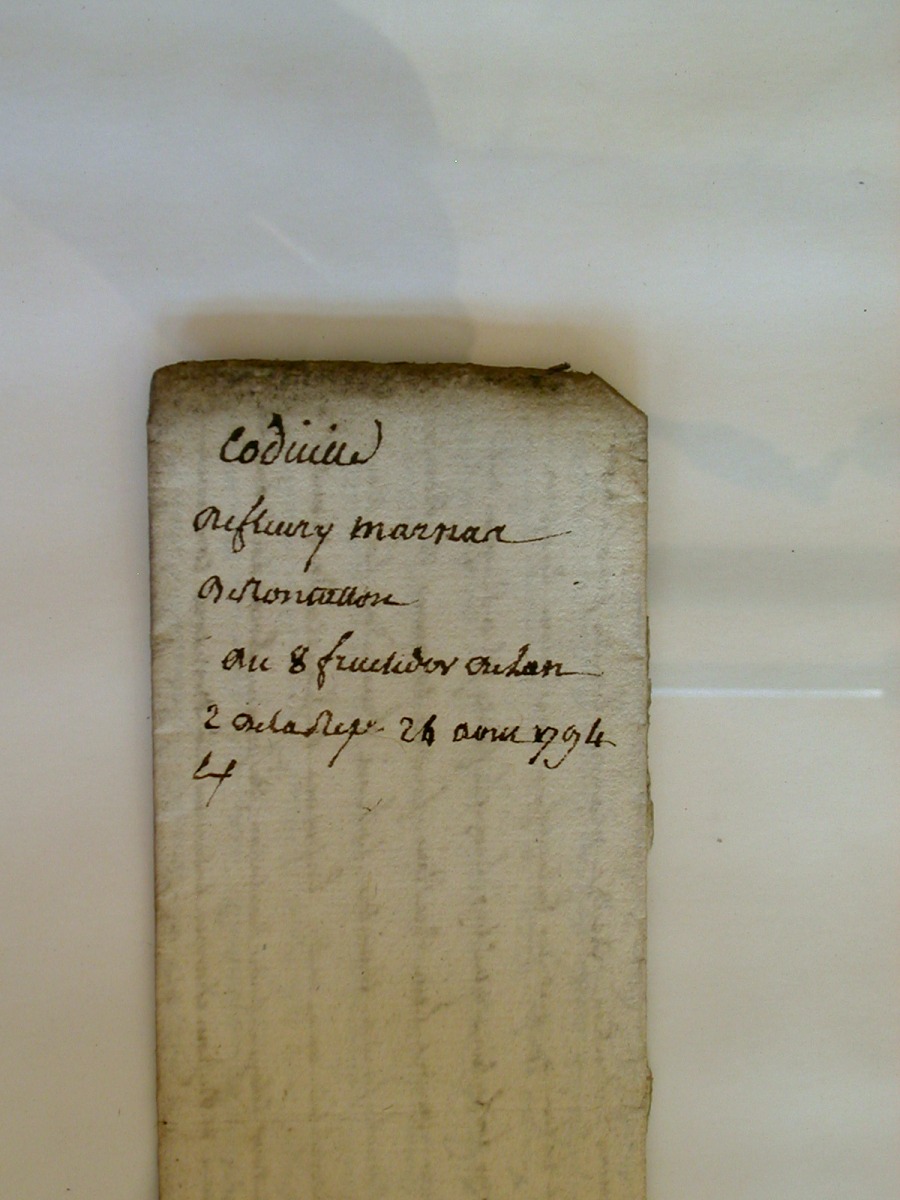 Codicille
de fleury marnas
de Rontallon
du 8 fructidor de lan
2 de la Rep. 24 aout 1794